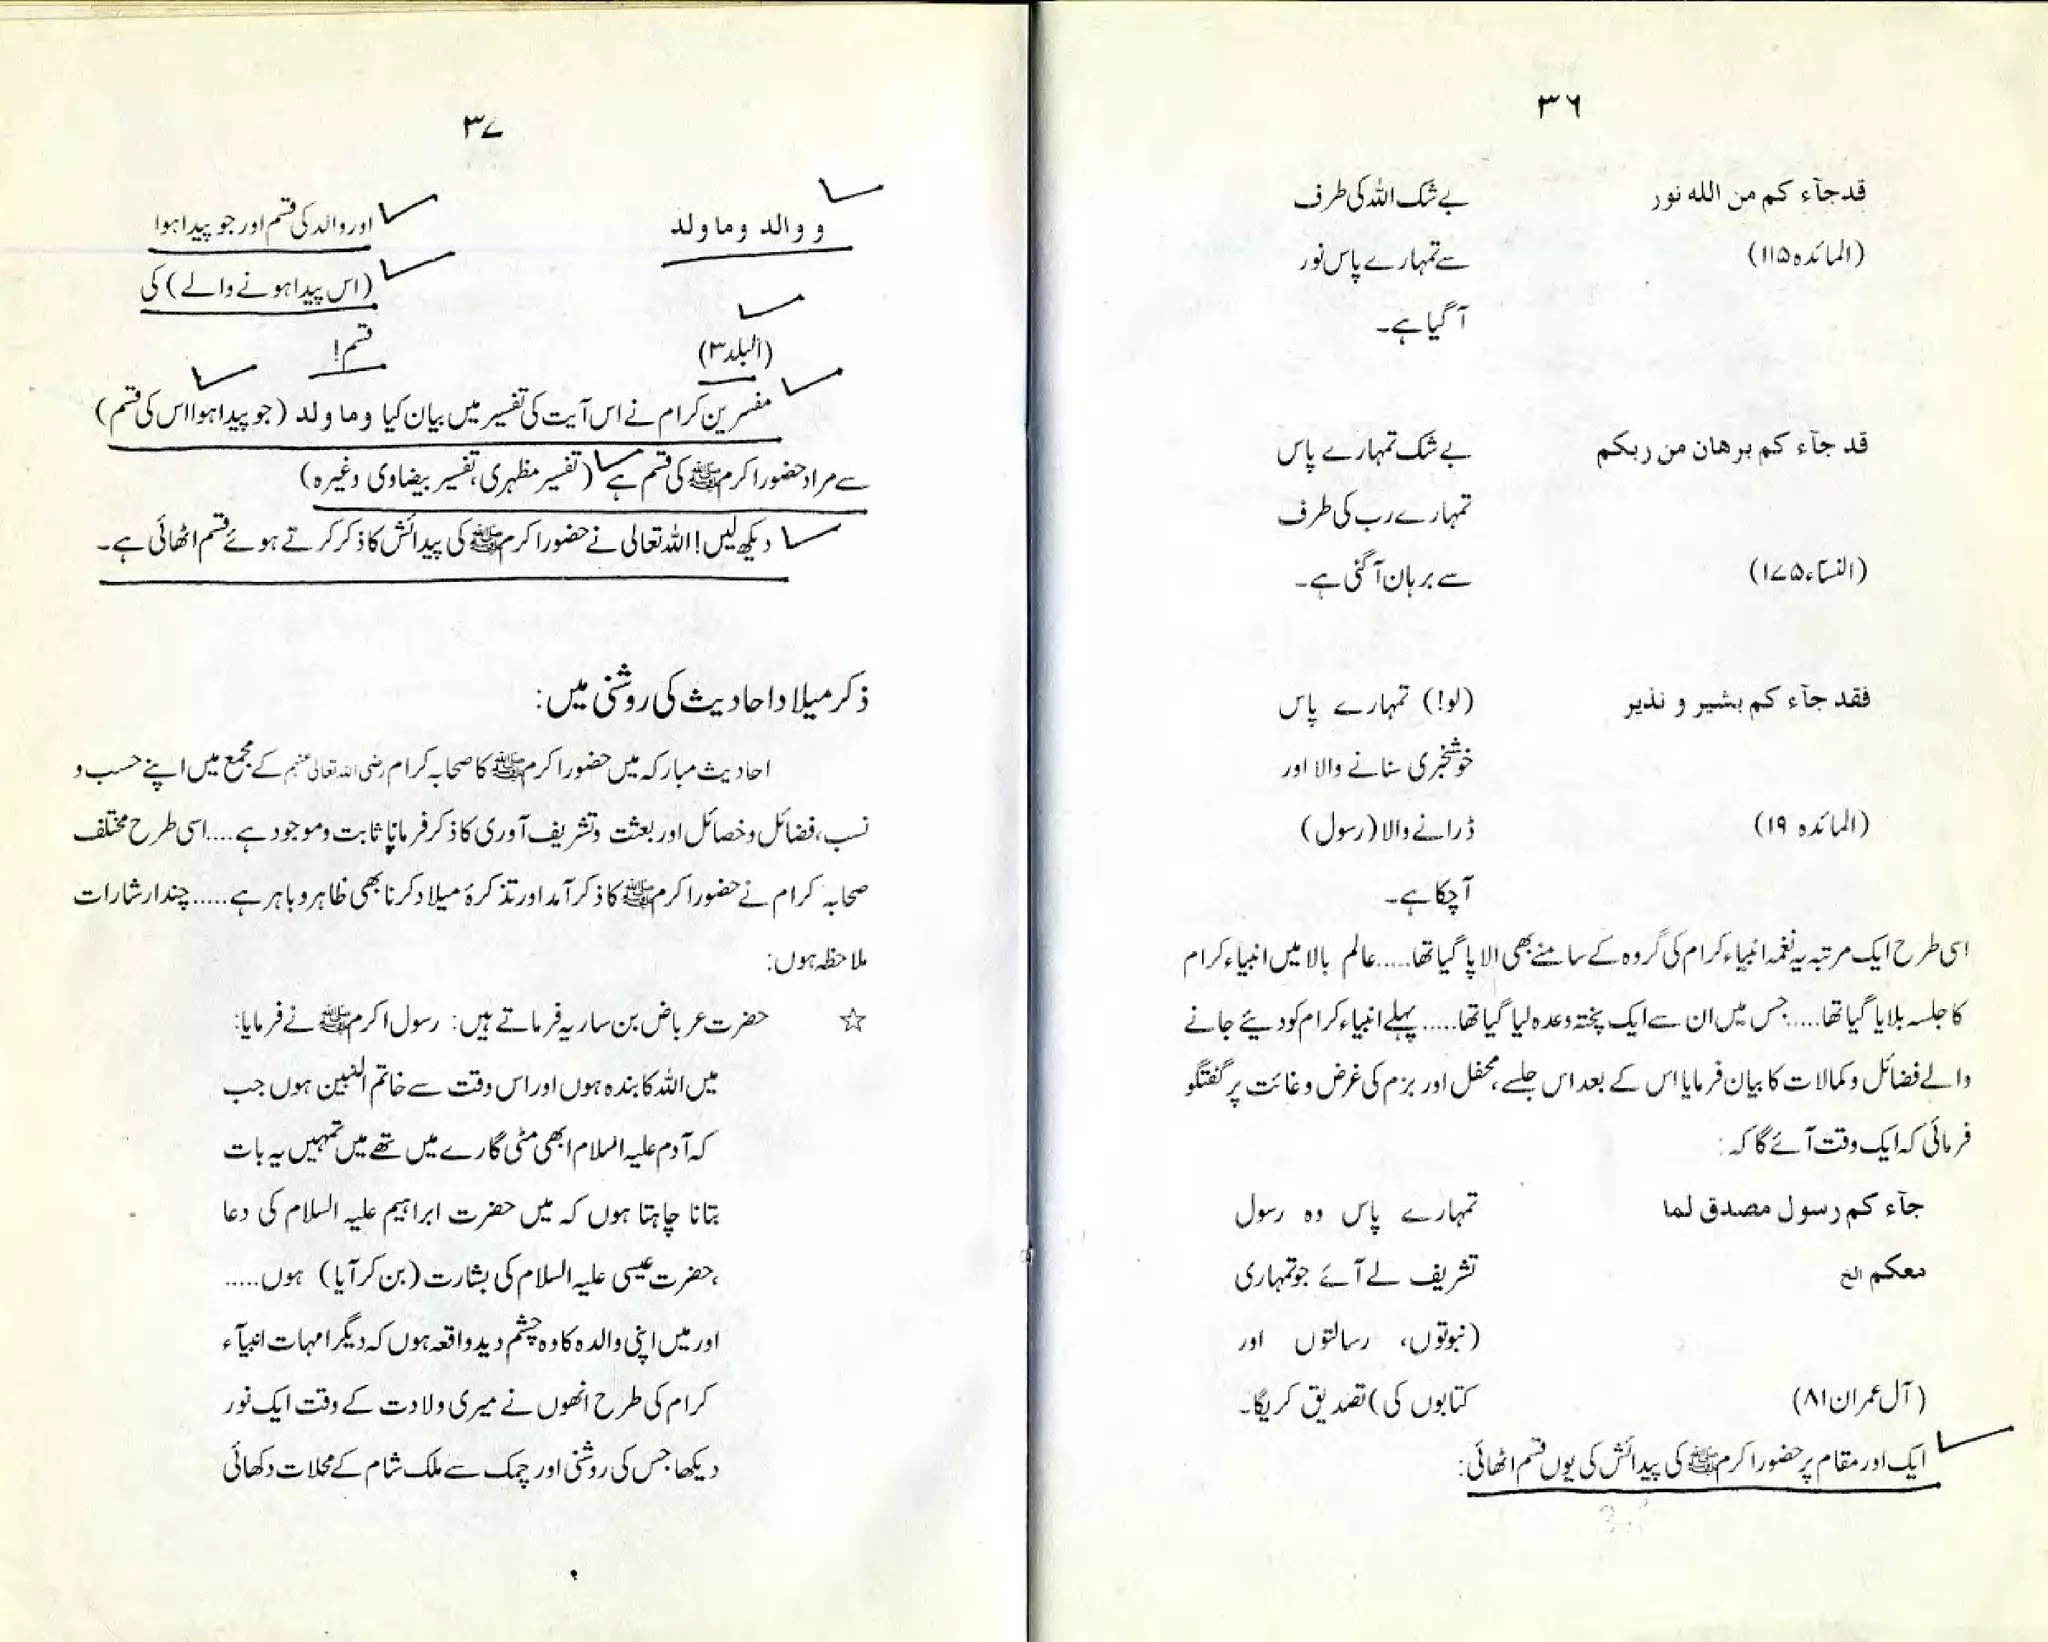 ٣٦
قد جآء کم من الله نور بے شک اللہ کی طرف
(المائدہ ۱۱۵) سے تمہارے پاس نور
آ گیا ہے۔
قد جآء کم برهان من ربکم بے شک تمہارے پاس
تمہارے رب کی طرف
(النسآء ۱۷۵) سے برہان آ گئی ہے۔
فقد جآء کم بشیر و نذیر (لو!) تمہارے پاس
خوشخبری سنانے والا اور
(المائدہ ۱۹) ڈرانے والا (رسول)
آ چکا ہے۔
اسی طرح ایک مرتبہ یہ نغمہ انبیاء کرام کی گروہ کے سامنے بھی الاپا گیا تھا.....عالم بالا میں انبیاء کرام
کا جلسہ بلایا گیا تھا.....جس میں ان سے ایک پختہ وعدہ لیا گیا تھا.....پہلے انبیاء کرام کو دیئے جانے
والے فضائل و کمالات کا بیان فرمایا اس کے بعد اس جلسے، محفل اور بزم کی غرض و غائت پر گفتگو
فرمائی کہ ایک وقت آئے گا کہ:
جآء کم رسول مصدق لما تمہارے پاس وہ رسول
معکم الخ تشریف لے آئے جو تمہاری
(نبوتوں، رسالتوں اور
(آل عمران ۸۱) کتابوں کی) تصدیق کریگا۔
ایک اور مقام پر حضور اکرم ﷺ کی پیدائش کی یوں قسم اٹھائی:
٣۷
و والد وما ولد اور والد کی قسم اور جو پیدا ہوا
(اس پیدا ہونے والے) کی
(البلد ٣) قسم!
مفسرین کرام نے اس آیت کی تفسیر میں بیان کیا وما ولد (جو پیدا ہوا اس کی قسم)
سے مراد حضور اکرم ﷺ کی قسم ہے (تفسیر مظہری، تفسیر بیضاوی وغیرہ)
دیکھ لیں! اللہ تعالی نے حضور اکرم ﷺ کی پیدائش کا ذکر کرتے ہوئے قسم اٹھائی ہے۔
ذکر میلاد احادیث کی روشنی میں:
احادیث مبارکہ میں حضور اکرم ﷺ کا صحابہ کرام رضی اللہ تعالی عنہم کے مجمع میں اپنے حسب و
نسب، فضائل و خصائل اور بعثت و تشریف آوری کا ذکر فرمانا ثابت و موجود ہے....اسی طرح مختلف
صحابہ کرام نے حضور اکرم ﷺ کا ذکر آمد اور تذکرۂ میلاد کرنا بھی ظاہر و باہر ہے.....چند ارشارات
ملاحظہ ہوں:
☆ حضرت عرباض بن ساریہ فرماتے ہیں: رسول اکرم ﷺ نے فرمایا:
میں اللہ کا بندہ ہوں اور اس وقت سے خاتم النبین ہوں جب
کہ آدم علیہ السلام ابھی مٹی گارے میں تھے میں تمہیں یہ بات
بتانا چاہتا ہوں کہ میں حضرت ابراہیم علیہ السلام کی دعا
،حضرت عیسی علیہ السلام کی بشارت (بن کر آیا) ہوں.....
اور میں اپنی والدہ کا وہ چشم دید واقعہ ہوں کہ دیگر امہات انبیآء
کرام کی طرح انھوں نے میری ولادت کے وقت ایک نور
دیکھا جس کی روشنی اور چمک سے ملک شام کے محلات دکھائی